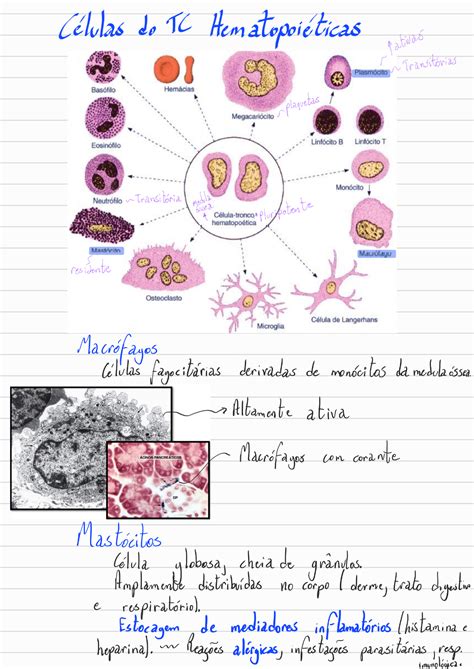 Células do TC Hematopoiéticas
Basófilo
Hemácias
Megacariócito
plaquetas
Plasmócito
ativas
Transitórias
Eosinófilo
Linfócito B
Linfócito T
Neutrófilo
Transitória
medula
óssea
Célula-tronco
hematopoética
pluripotente
Monócito
Mastócito
residente
Macrófago
Osteoclasto
Microglia
Célula de Langerhans
Macrófagos
Células fagocitárias derivadas de monócitos da medula óssea
Altamente ativa
ÁCINOS PANCREÁTICOS
Macrófagos com corante
Mastócitos
Célula globosa, cheia de grânulos.
Amplamente distribuídas no corpo (derme, trato digestivo
e respiratório).
Estocagem de mediadores inflamatórios (histamina e
heparina). Reações alérgicas, infestações parasitárias, resp.
imunológica.